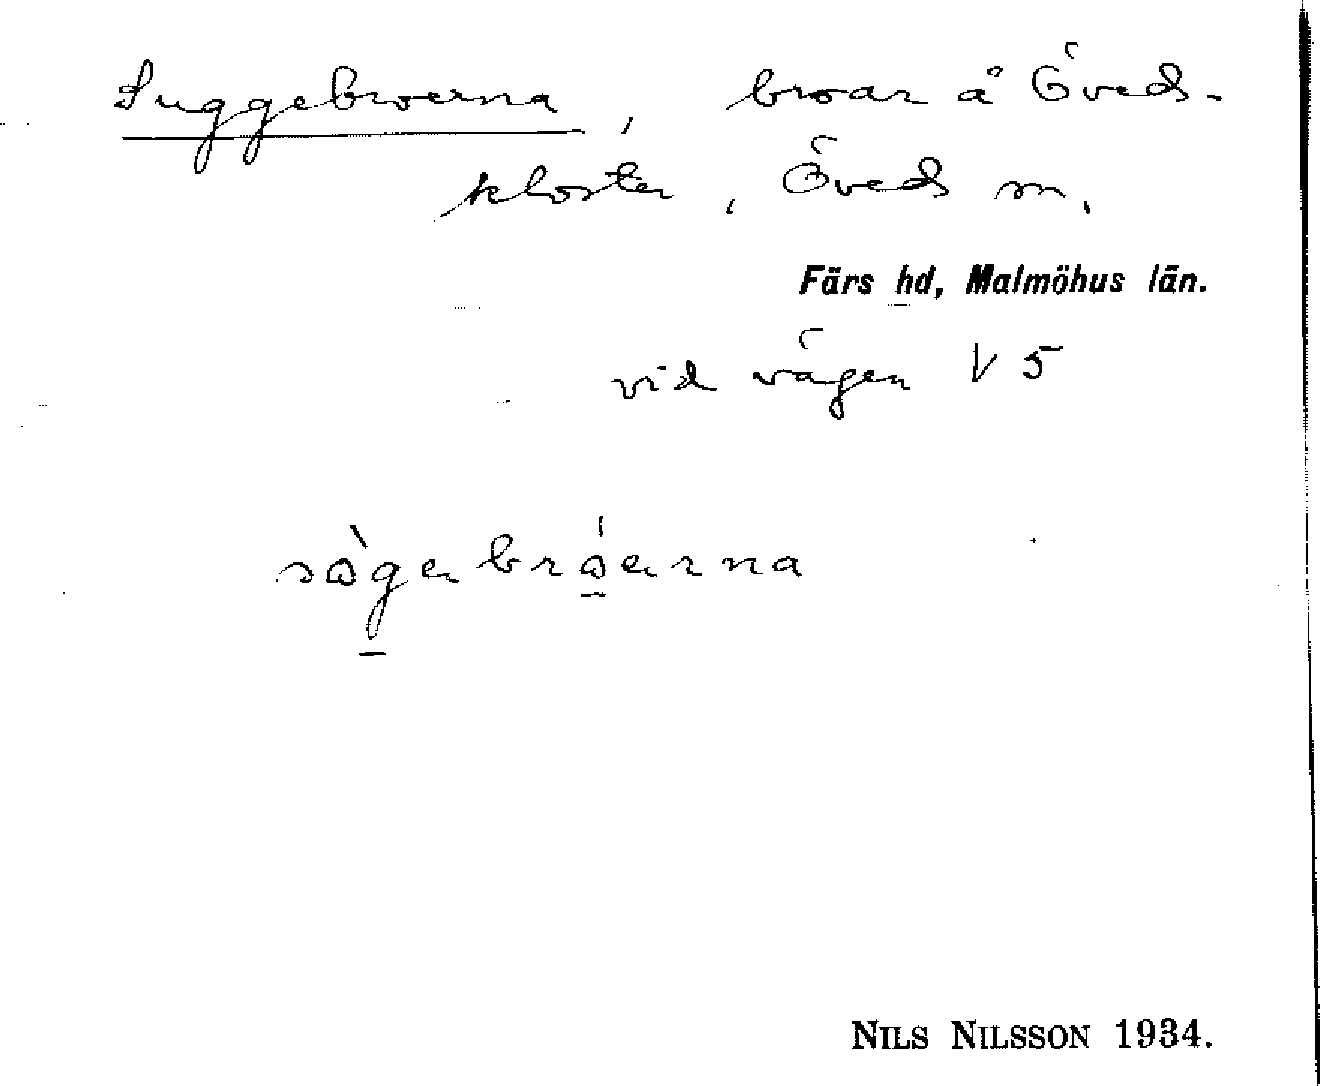 Suggebroerna, broar å Öveds-
kloster, Öveds sn.
Färs hd, Malmöhus län.
vid vägen V 5
sògerbróerna
NILS NILSSON 1934.